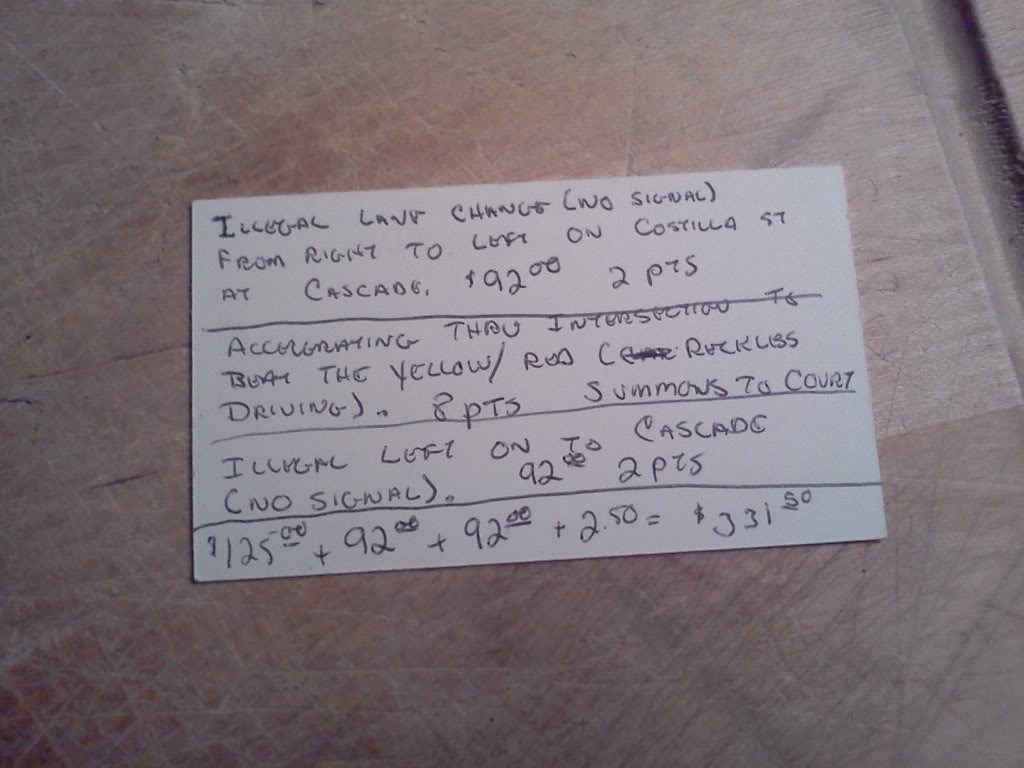 ILLEGAL LANE CHANGE (NO SIGNAL)
FROM RIGHT TO LEFT ON COSTILLA ST
AT CASCADE. $92.00 2 PTS
ACCELERATING THRU INTERSECTION TO
BEAT THE YELLOW/RED ( RECKLESS
DRIVING). 8 PTS SUMMONS TO COURT
ILLEGAL LEFT ON TO CASCADE
(NO SIGNAL). 92.00 2 PTS
$125.00 + 92.00 + 92.00 + 2.50 = $331.50